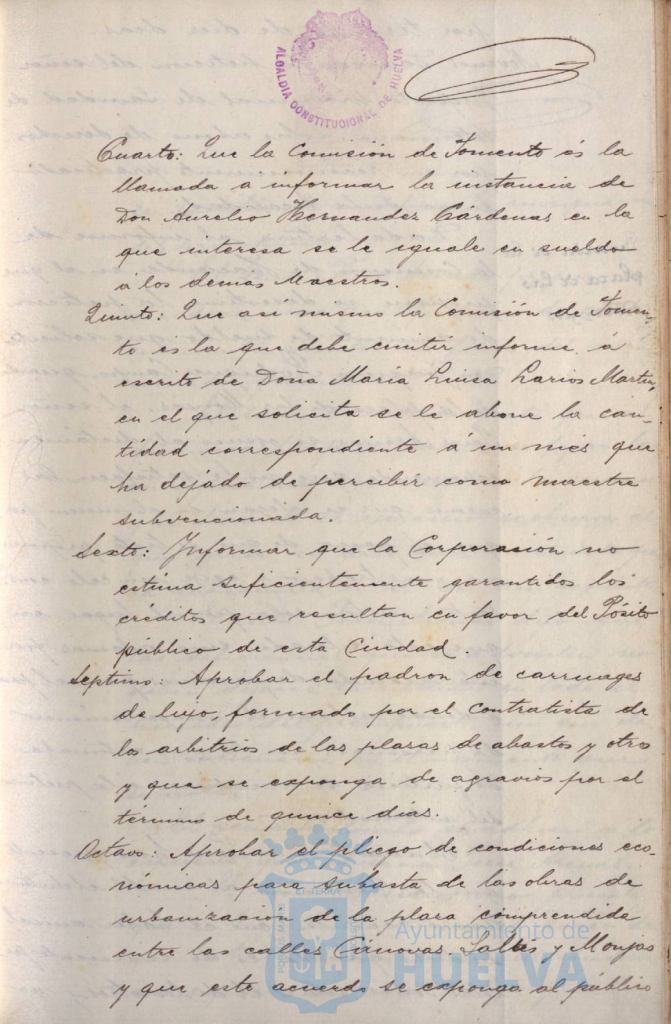 ALCALDÍA CONSTITUCIONAL DE HUELVA
Cuarto: Que la Comisión de Fomento es la
llamada a informar la instancia de
Don Aurelio Hernandez Cárdenas en la
que interesa se le iguale en sueldo
á los demás Maestros.
Quinto: Que así mismo la Comisión de Fomen-
to es la que debe emitir informe á
escrito de Doña María Luisa Larios Martin,
en el que solicita se le abone la can-
tidad correspondiente á un mes que
ha dejado de percibir como maestra
subvencionada.
Sexto: Informar que la Corporasión no
estima suficientemente garantidos los
créditos que resultan en favor del Pósito
público de esta Ciudad.
Septimo: Aprobar el padron de carruages
de lujo, formado por el contratista de
los arbitrios de las plasas de abastos y otros
y que se exponga de agravios por el
término de quince días.
Octavo: Aprobar el pliego de condiciones eco-
nómicas para subasta de las obras de
urbanización de la plasa comprendida
entre las calles Cánovas, Saltés y Monjas
y que este acuerdo se exponga al público
Ayuntamiento de
HUELVA